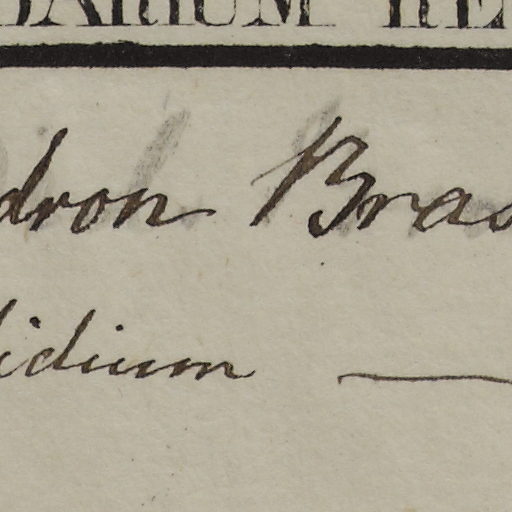 DARIUM RE
dron Bras
idium —